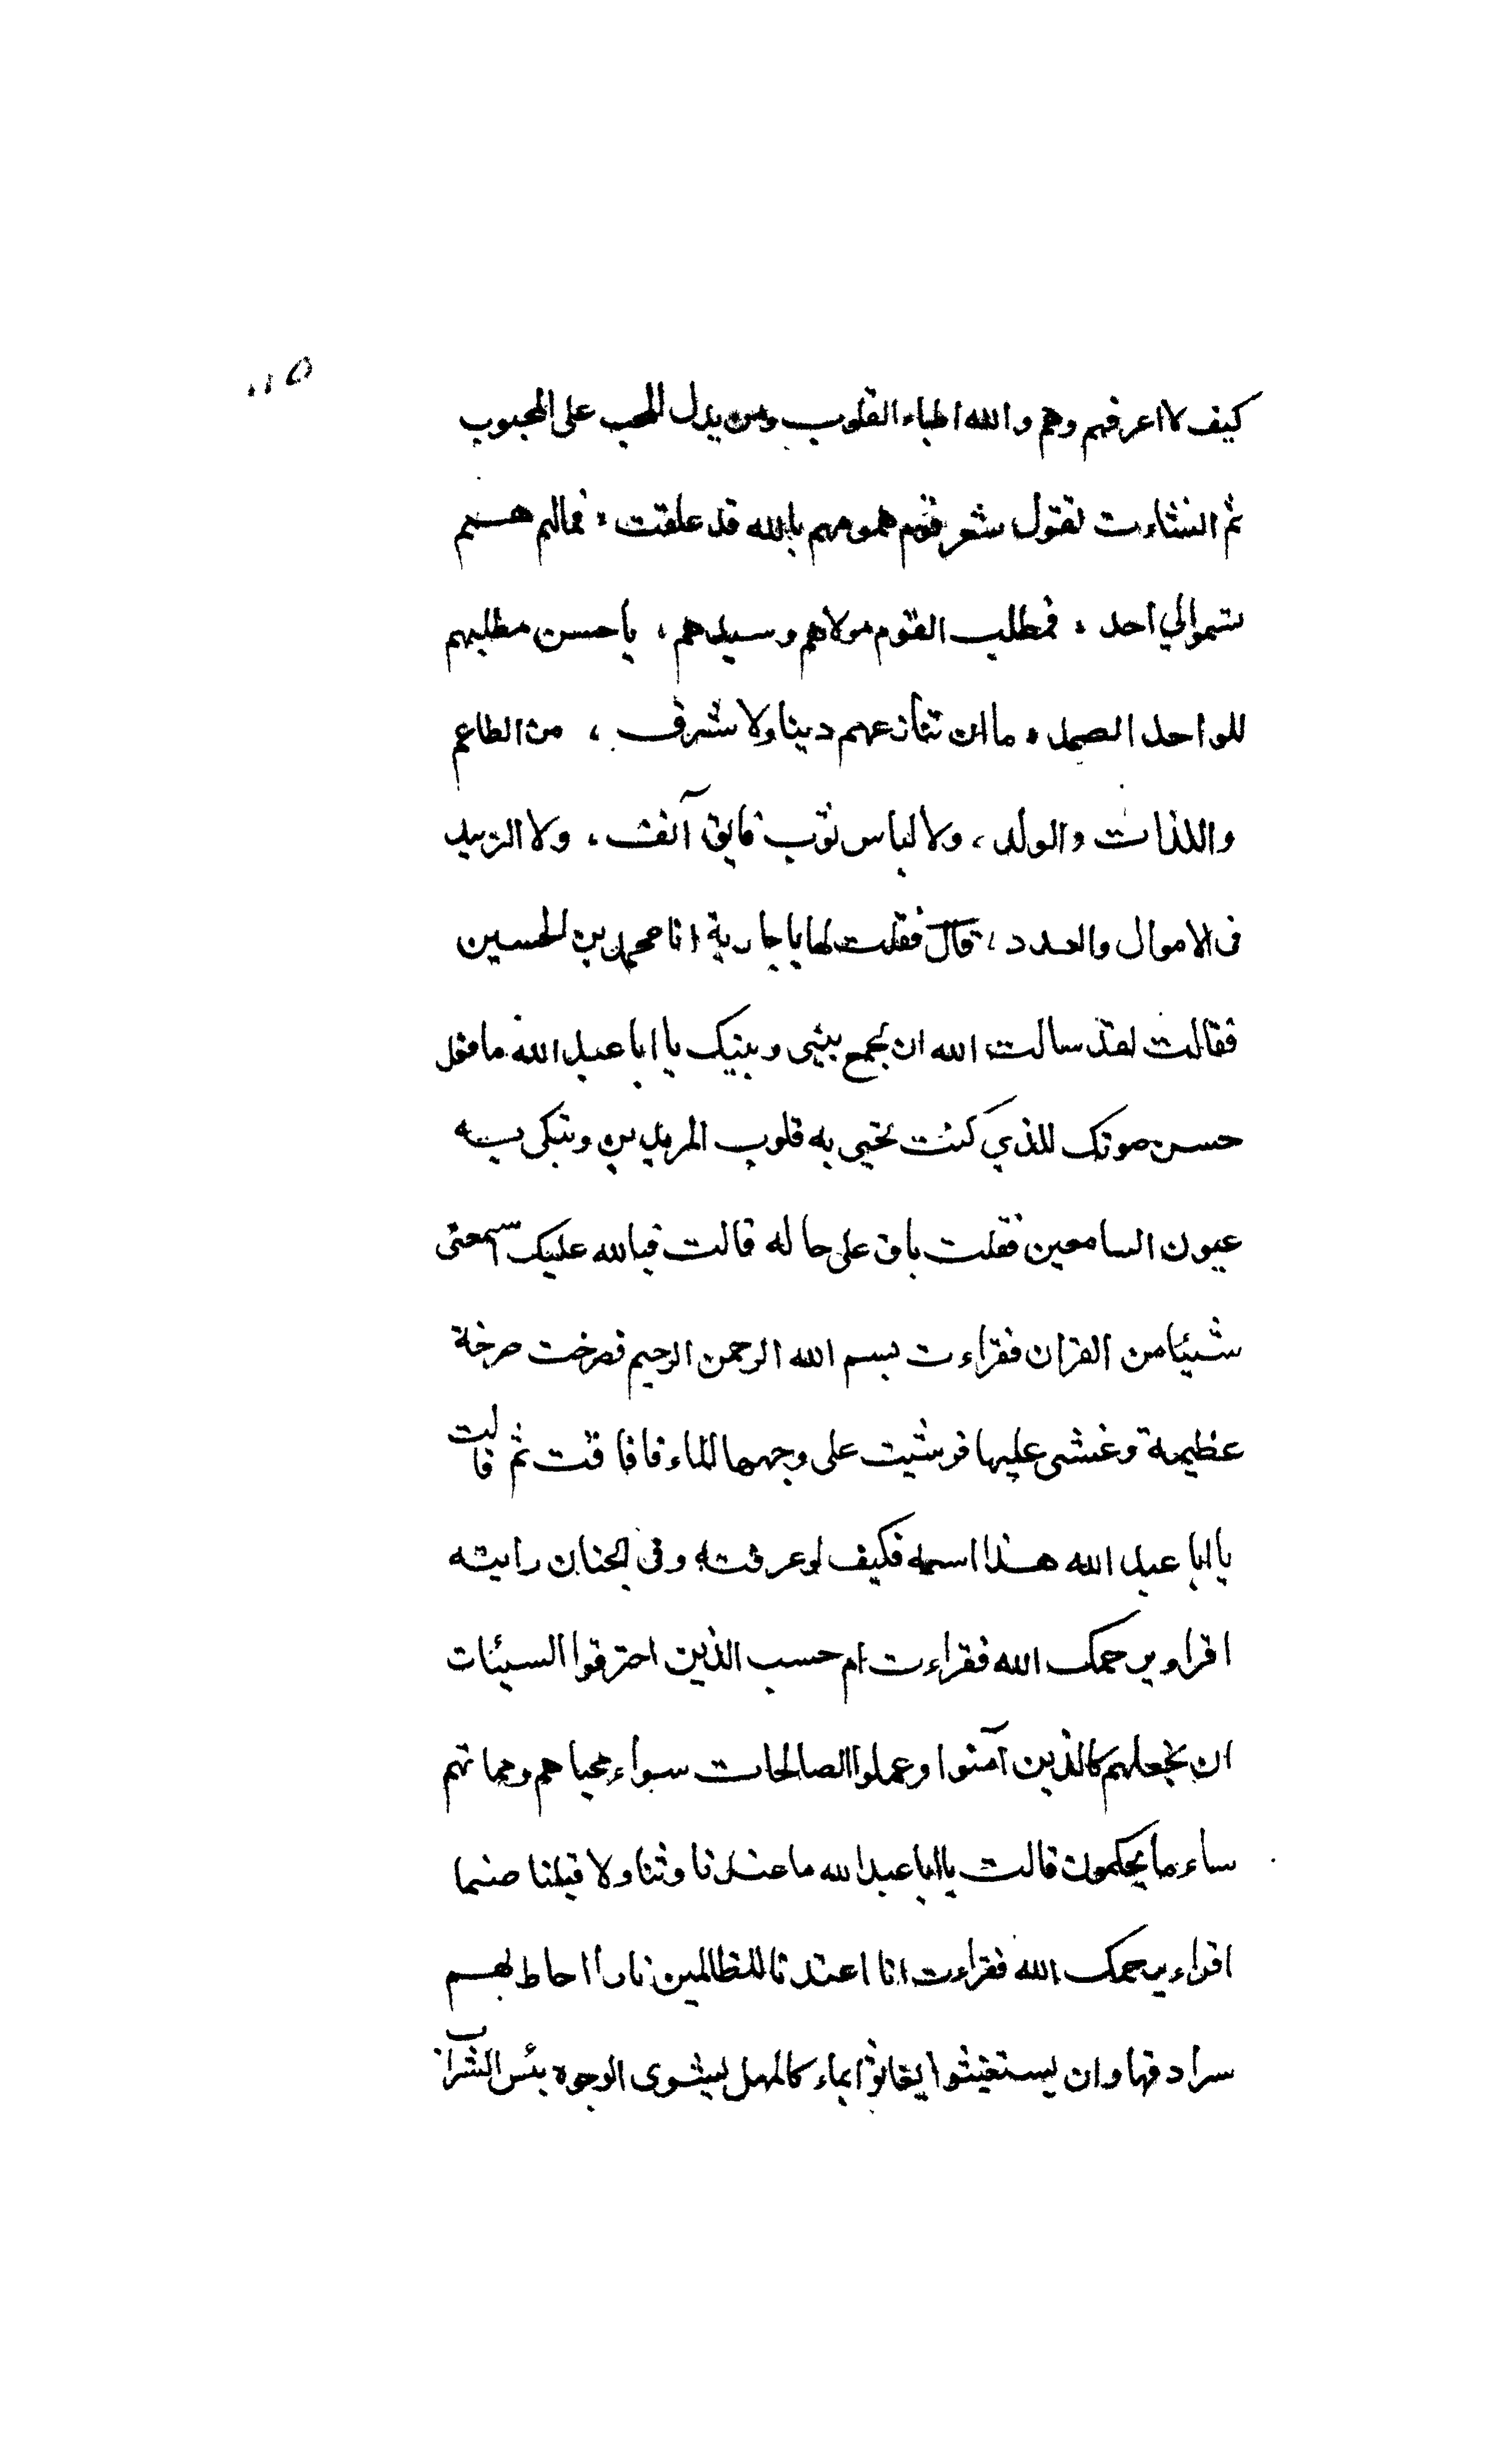 ١١٥
كيف لا اعرفهم وهم والله اطباء القلوب ومن يدل المحب على المحبوب
ثم انشاءت تقول شعر قوم همومهم بالله قد علقت ، فمالهم همم
تسموالي احد ، فمطلب القوم مولاهم وسيدهم ، ياحسن مطلبهم
للواحد الصمد ، ما ان تنازعهم دينا ولا شرف ، من الطاعم
واللذات والولد ، ولا لباس ثوب فايق آنف ، ولا الزييد
فى الاموال والعدد ، قال فقلت لها يا جارية انا محمد بن الحسين
فقالت لقد سالت الله ان يجمع بيني وبينك يا ابا عبد الله ما فعل
حسن صوتك الذي كنت تحيى به قلوب المريدين وتبكى بــه
عيون السامعين فقلت باق على حاله قالت فبالله عليك اسمعنى
شيئا من القران فقراءت بسم الله الرحمن الرحيم فصرخت صرخة
عظيمة وغشى عليها فرشيت على وجهها الماء فافاقت ثم قالت
يا ابا عبد الله هذا اسمه فكيف لوعرفته وفى الجنان رايته
اقراء يرحمك الله فقراءت ام حسب الذين اجترقوا السيئات
ان نجعلهم كالذين آمنوا وعملوا الصالحات سواء محياهم ومماتهم
ساء ما يحكمون قالت يا ابا عبد الله ما عندنا وثنا ولا قبلنا صنما
اقراء يرحمك الله فقراءت انا اعتدنا للظالمين نارا احاط بهــم
سرادقها وان يستغيثوا يغاثوا بماء كالمهل يشوى الوجوه بئس الشراب